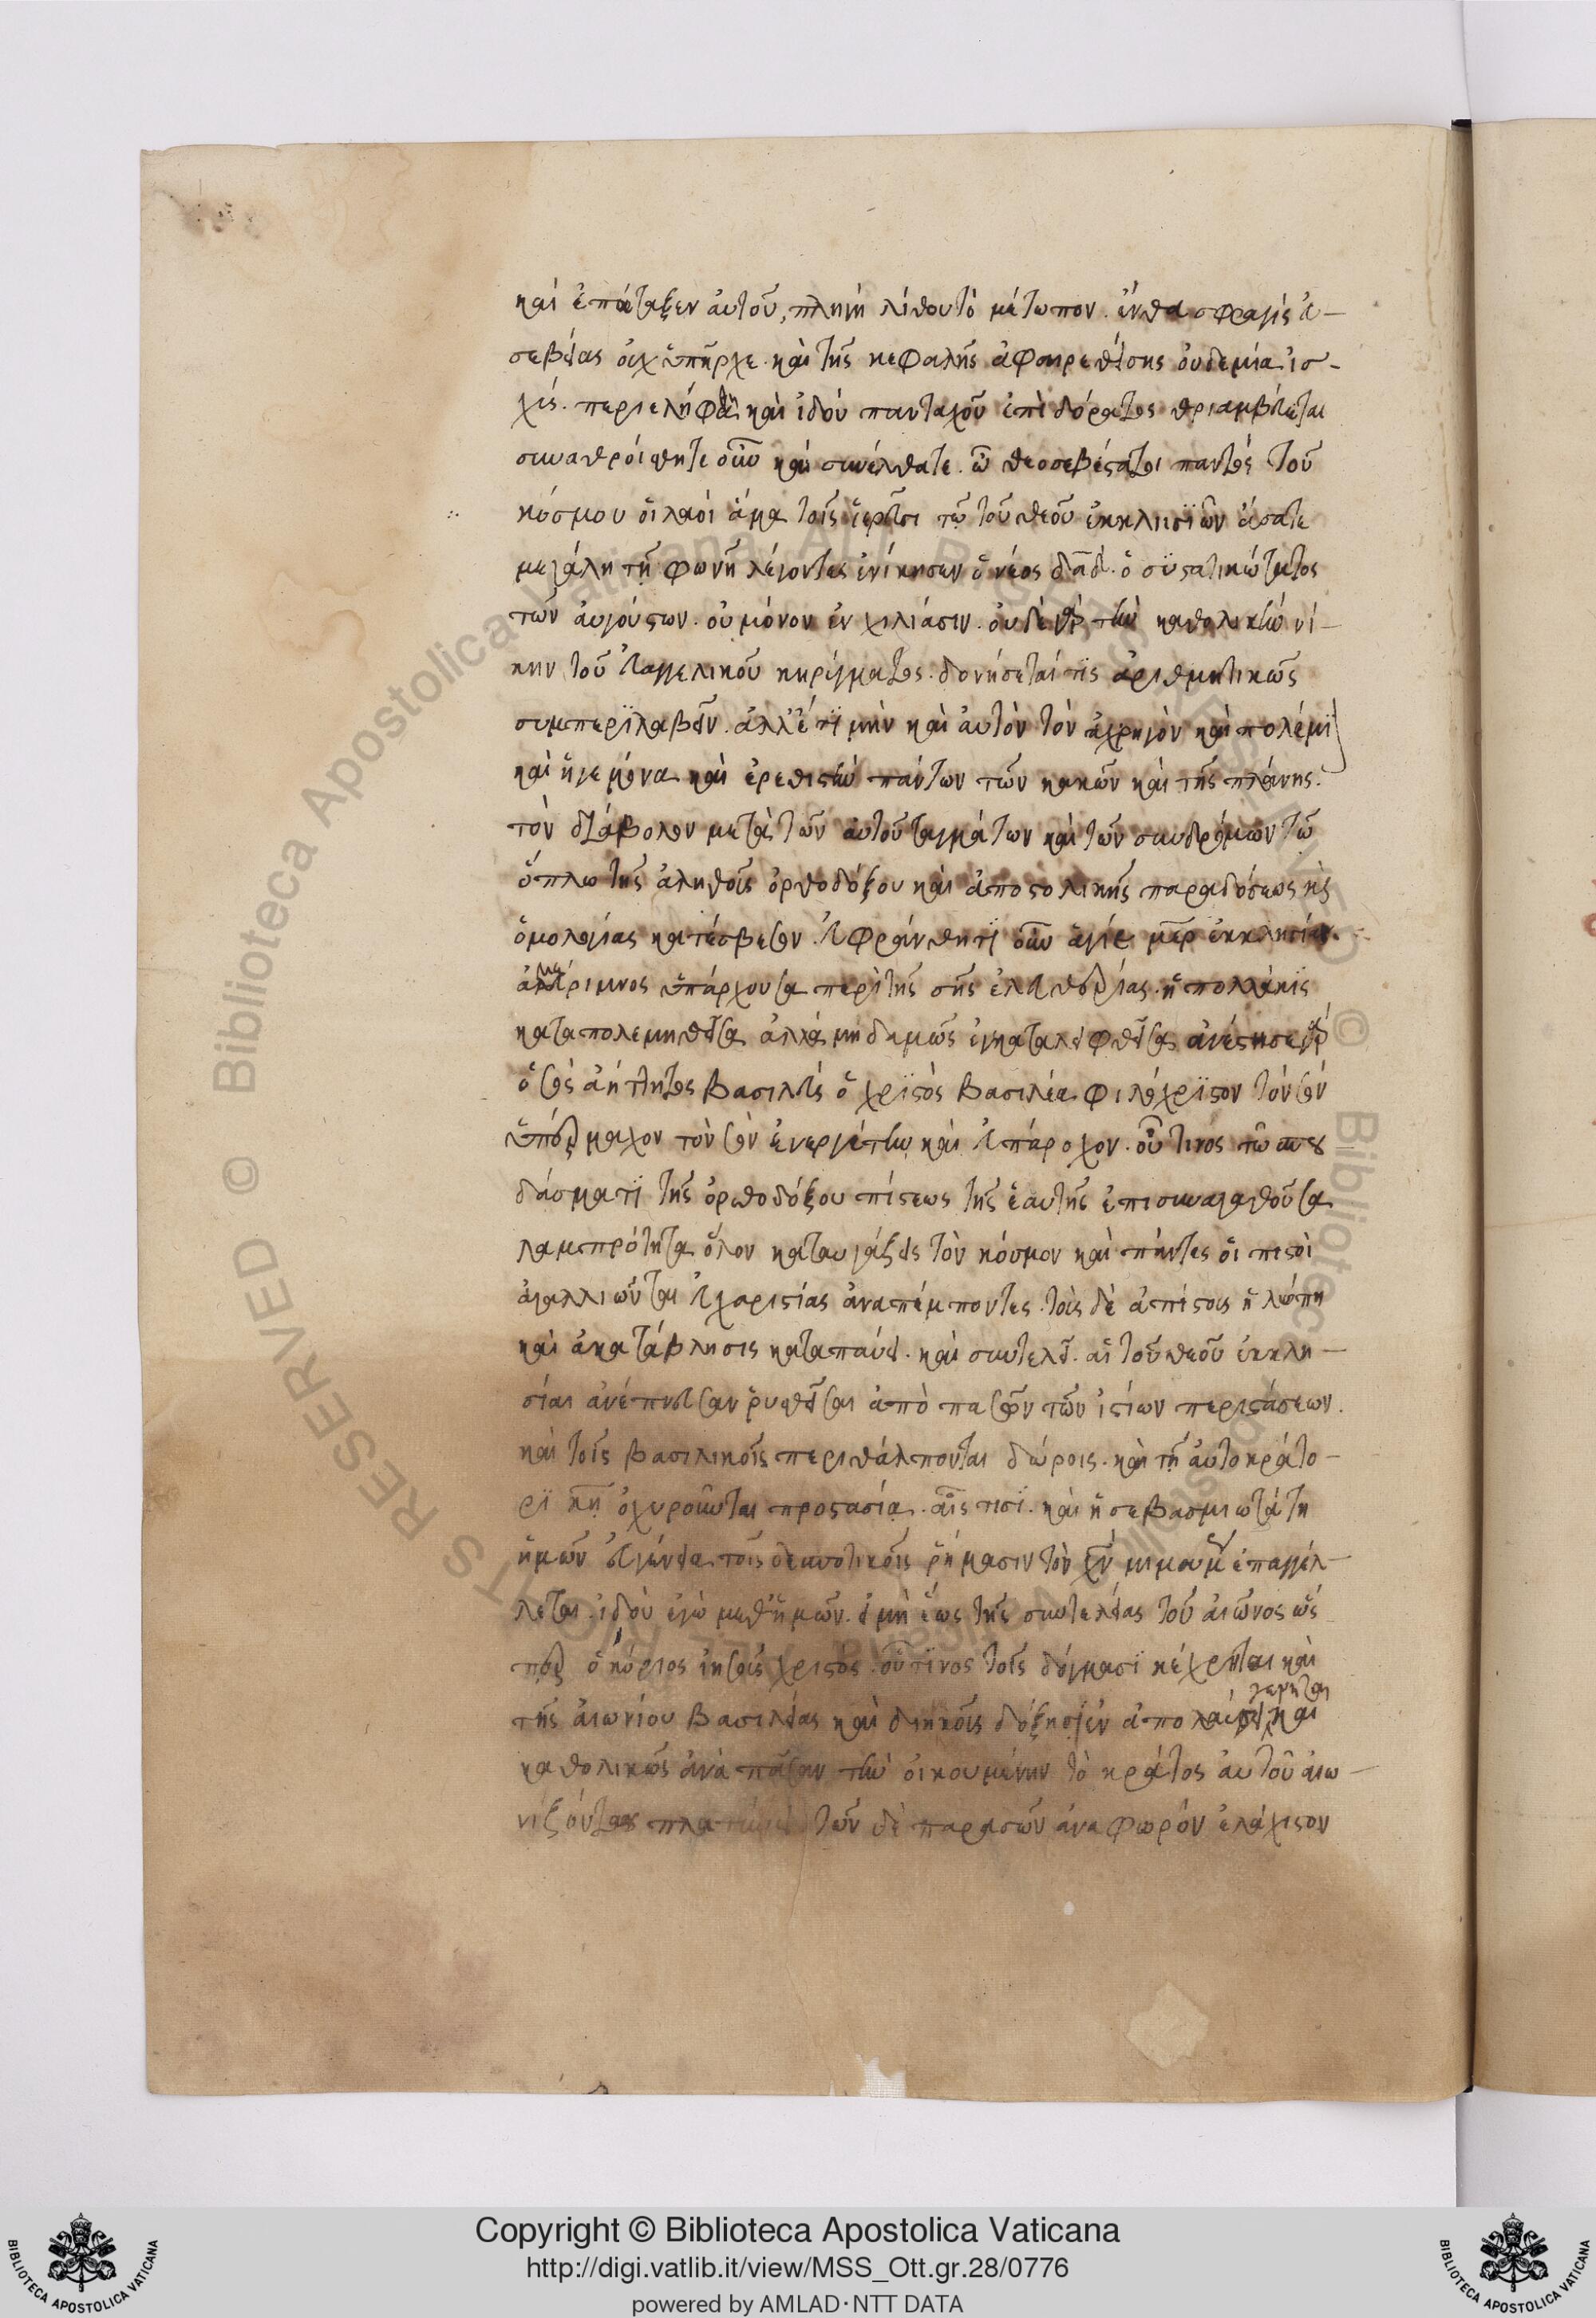 καὶ ἐπάταξεν αὐτοῦ, πληγῆ λίθου τὸ μέτωπον. ἔνθα σφραγὶς εὐ-
σεβείας οὐχ ὕπῆρχε. καὶ τῆς κεφαλῆς ἀφαιρεθείσης οὐδεμία ἰσ-
χύς. περιελήφθη καὶ ἰδοὺ πανταχοῦ ἐπὶ δόρατος θριαμβεύεται
συναθροίσθητε οὖν καὶ συνέλθατε. ὦ θεοσεβέστατοι παντὸς τοῦ
κόσμου οἱ λαοὶ ἅμα τοῖς ἱερεῦσι τῶν τοῦ θεοῦ ἐκκλησϊῶν ἄρατε
μεγάλη τῆ φωνῆ λέγοντες ἐνίκησεν ὁ νέος δᾱδ. ὁ συστατικώτατος
τῶν αὐγούστων. οὐ μόνον ἐν χιλιάσιν. οὐδὲ γὰρ τὴν καθολικὴν νί-
κην τοῦ εὐαγγελικοῦ κηρύγματος. δονήσεταί τϊς ἀριθμητικῶς
συμπερϊλαβεῖν. ἀλλ' ἔτϊ μὴν καὶ αὐτὸν τὸν ἀρχηγὸν καὶ πολέμϊ
καὶ ἡγεμόνα καὶ ἐρεθιστὴν πάντων τῶν κακῶν καὶ τῆς πλάνης.
τὸν διάβολον μετὰ τῶν αὐτοῦ ταγμάτων καὶ τῶν συνδρόμων τῶ
ὅπλω τῆς ἀληθοῦς ὀρθοδόξου καὶ ἀποστολικῆς παραδόσεως κὶ
ὁμολογίας κατέσβεσεν. εὐφράνθητϊ οὖν ἁγία μ͞ηρ ἐκκλησία.
ἀμέριμνος ὑπάρχουσα περὶ τῆς σῆς ἐλευθερίας. ἡ πολλάκϊς
καταπολεμηθεῖσα ἀλλὰ μηδαμῶς ἐγκαταλειφθεῖσα ἀνέστησε γὰρ
ὁ σὸς ἀήττητος βασιλεὺς ὁ χρϊστὸς βασιλέα φιλόχρϊστον τὸν σὸν
ὑπέρμαχον τὸν σὸν ἐνεργέτην καὶ εὐπάροχον. οὗ τινὸς τῶ σπου
δάσματϊ τῆς ὀρθοδόξου πίστεως τῆς ἑαυτῆς ἐπισυναγαγοῦσα
λαμπρότητα ὅλον καταυγάζεις τὸν κόσμον καὶ πάντες οἱ πιστοὶ
ἀγαλλιῶνται εὐχαριστίας ἀναπέμποντες. τοῖς δὲ ἀπίστοις ἡ λύπη
καὶ ἀκατάβλησις καταπαύει. καὶ συντελεῖ. αἱ τοῦ θεοῦ ἐκκλη-
σίαι ἀνέπνευσαν ῥυσθεῖσαι ἀπὸ πασῶν τῶν περιστάσεων.
καὶ τοῖς βασιλικοῖς περιθάλπονται δώροις. καὶ τῆ αὐτοκράτο-
ρϊ κῆ ὀχυροῦνται προστασία. αἷς τισϊ. καὶ ἡ σεβασμιωτάτη
ἡμῶν εὐγένεια τοῖς δεσποτικοῖς ῥήμασιν τὸν χ͞ν μιμουμ ἐπαγγέλ-
λεται. ἰδοὺ ἐγὼ μεθ' ἡμῶν. εἰμὴ ἕως τῆς συντελείας τοῦ αἰῶνος ὥς
περ ὁ κύριος ἰησοῦς χριστὸς. οὗ τϊνος τοῖς δόγμασϊ κέχρηται καὶ
τῆς αἰωνίου βασιλείας καὶ διηκοῦς δόξης ἐν ἀπολαύσει γενήται καὶ
καθολικῶς ἀνὰ πᾶσαν τὴν οἰκουμένην τὸ κράτος αὐτοῦ αἰω-
νίζοντας τῶν δὲ παρασῶν ἀναφωρὸν ἐλάχιστον
Copyright © Biblioteca Apostolica Vaticana
http://digi.vatlib.it/view/MSS_Ott.gr.28/0776
powered by AMLAD·NTT DATA
BIBLIOTECA APOSTOLICA VATICANA
BIBLIOTECA APOSTOLICA VATICANA